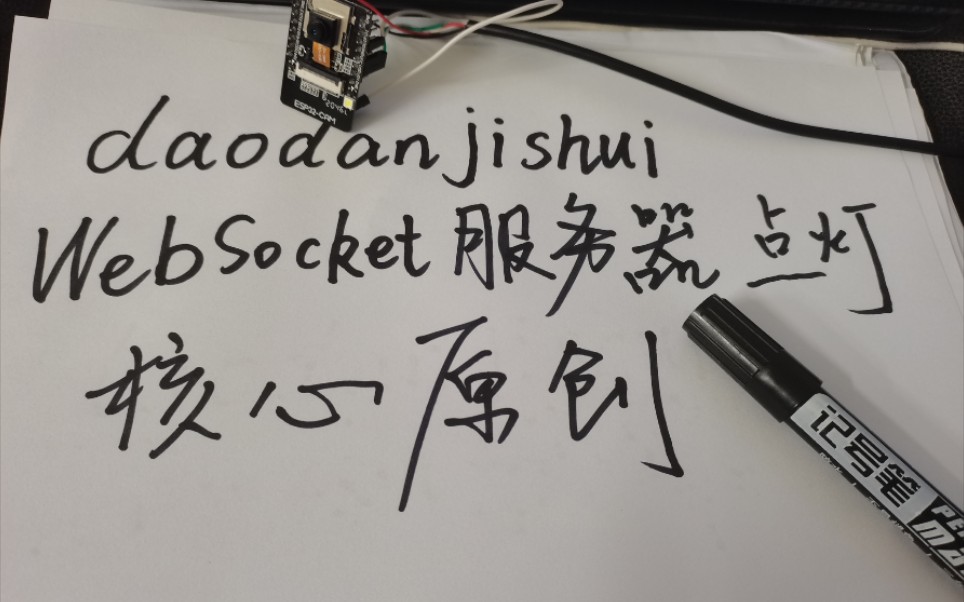 ESP32-CAM
daodanjishui
WebSocket服务器点灯
核心原创
记号笔